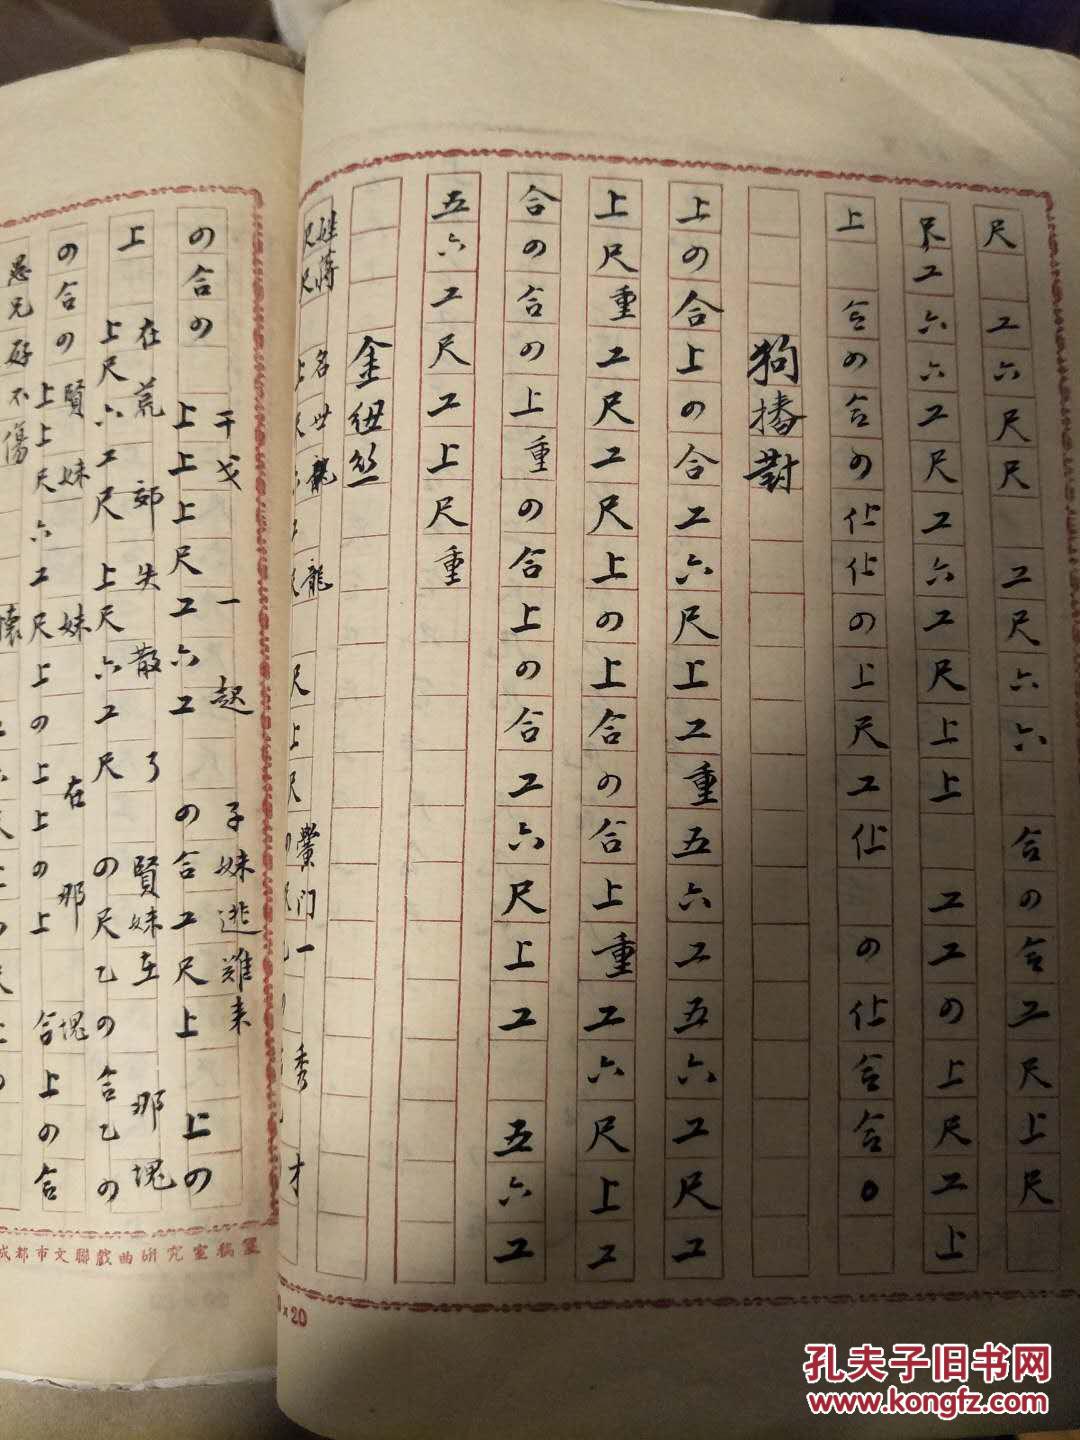 尺 工六尺尺 工尺六六 合の合工尺上尺
尺工六六工尺工六工尺上上 工工の上尺工上
上 合の合の仩仩の上尺工仩 の仩合合〇
狗播對
上の合上の合工六尺上工重五六工五六工尺工
上尺重工尺工尺上の上合の合上重工六尺上工
合の合の上重の合上の合工六尺上工 五六工
五六工尺工上尺重
金纽絲
姓蒋 名世龍 龍 黌门一 秀才
×20
干戈 一起 子妹逃難来
の合の 上上上尺工六工 の合工尺上 上の
在荒郊失散了 賢妹在那塊
上 上尺六工尺 上尺六工尺 の尺乙の合乙の
賢妹 妹 在 那 塊
の合の上上尺六工尺上の上上の上 合上の合
愚兄好不傷 懷
成都市文聯戲曲研究室稿箋
孔夫子旧书网
www.kongfz.com